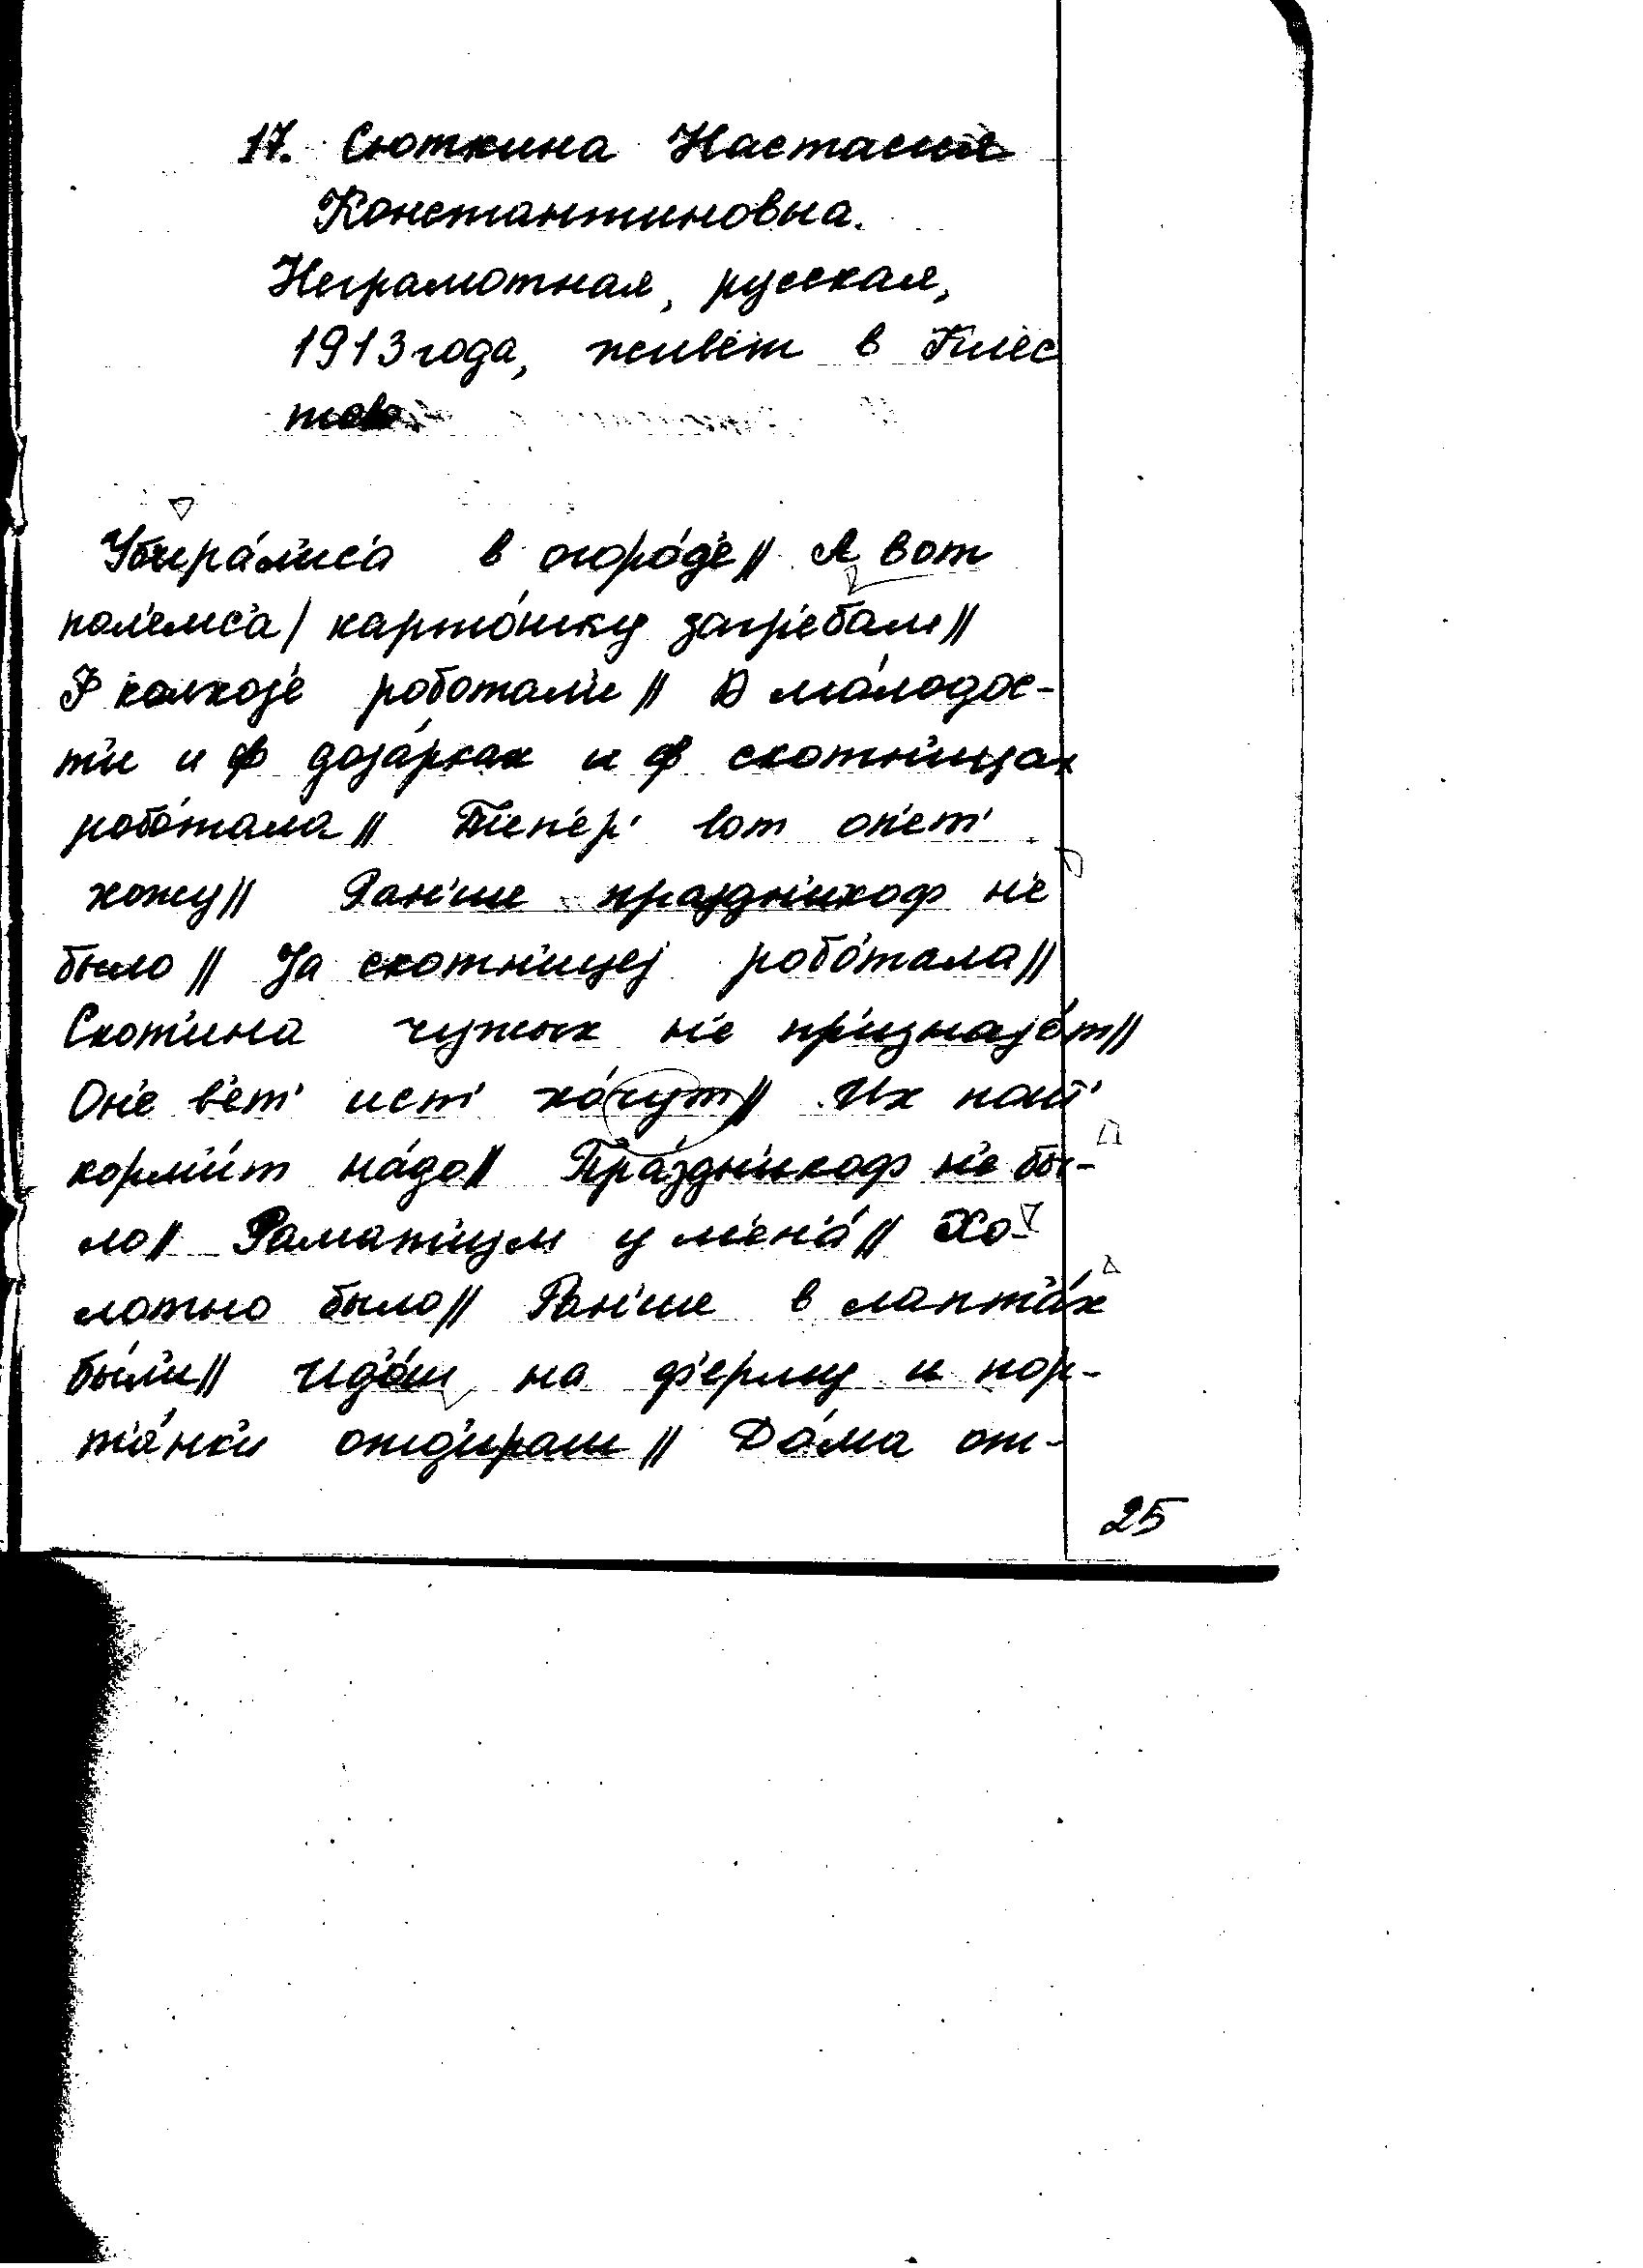 17. Сюткина Настасия
Константиновна.
Неграмотная, русская,
1913 года, живёт в Клес
тово
Убира́л'ис'а в огоро́д'е // А вот
пол'емс'а / карто́шку загр'ебам //
Ф колхоз'е роботал'и // В мо́лодос-
т'и и ф дојарках и ф скотн'ицах
робо́тала // Т'иеп'ер' вот оп'ет'
хожу // Ран'ше празн'икоф н'е
было // Ја скотн'ицеј робо́тала //
Скот'ина чужых н'е пр'изнајо́т //
Он'е в'ет' ист' хо́чут // Их поит'
корм'и́т на́до // Пра́здн'икоф н'е бы-
ло // Рамат'изм у м'ен'а́ // Хо-
лотно было // Ран'ше в лапт'а́х
бы́л'и // Ид'о́ш на ф'ерму и пор-
т'а́нк'и отд'ираш // До́ма от-
25